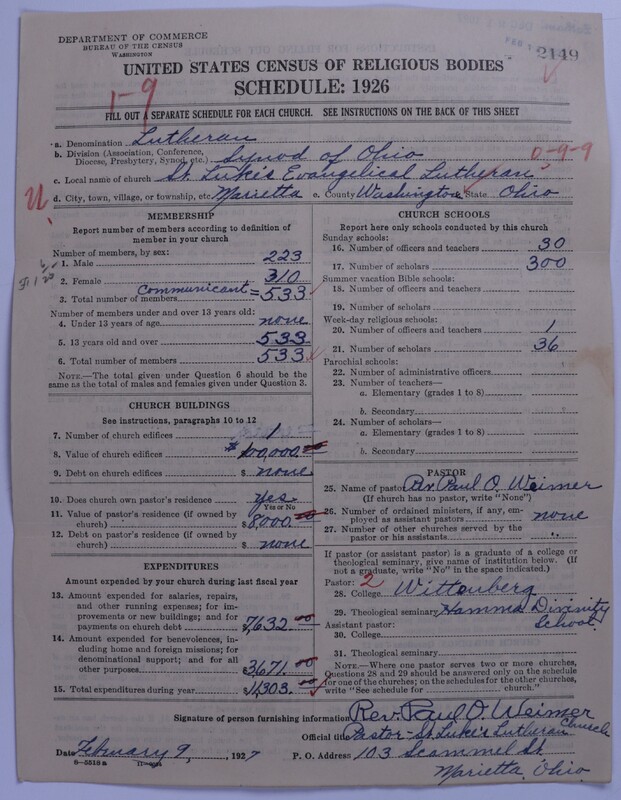 DEPARTMENT OF COMMERCE
BUREAU OF THE CENSUS
WASHINGTON
2149
UNITED STATES CENSUS OF RELIGIOUS BODIES
SCHEDULE: 1926
1-9
FILL OUT A SEPARATE SCHEDULE FOR EACH CHURCH. SEE INSTRUCTIONS ON THE BACK OF THIS SHEET
a. Denomination Lutheran
b. Division (Association, Conference, Diocese, Presbytery, Synod, etc.) Synod of Ohio
0-9-9
c. Local name of church St. Luke's Evangelical Lutheran
U
d. City, town, village, or township, etc. Marietta e. County Washington State Ohio
MEMBERSHIP
Report number of members according to definition of
member in your church
Number of members, by sex:
1. Male 223
2. Female 310
Communicant =
3. Total number of members 533
Number of members under and over 13 years old:
4. Under 13 years of age none
5. 13 years old and over 533
6. Total number of members 533
NOTE.—The total given under Question 6 should be
the same as the total of males and females given under Question 3.
CHURCH BUILDINGS
See instructions, paragraphs 10 to 12
7. Number of church edifices 1
8. Value of church edifices $100,000.00
9. Debt on church edifices $ none
10. Does church own pastor's residence yes
Yes or No
11. Value of pastor's residence (if owned by
church) $8,000.00
12. Debt on pastor's residence (if owned by
church) $ none
EXPENDITURES
Amount expended by your church during last fiscal year
13. Amount expended for salaries, repairs,
and other running expenses; for im-
provements or new buildings; and for
payments on church debt $7,632.00
14. Amount expended for benevolences, in-
cluding home and foreign missions; for
denominational support; and for all
other purposes $3,671.00
15. Total expenditures during year $11,303.00
CHURCH SCHOOLS
Report here only schools conducted by this church
Sunday schools:
16. Number of officers and teachers 30
17. Number of scholars 300
Summer vacation Bible schools:
18. Number of officers and teachers
19. Number of scholars
Week-day religious schools:
20. Number of officers and teachers 1
21. Number of scholars 36
Parochial schools:
22. Number of administrative officers
23. Number of teachers—
a. Elementary (grades 1 to 8)
b. Secondary
24. Number of scholars—
a. Elementary (grades 1 to 8)
b. Secondary
PASTOR
25. Name of pastor Rev. Paul O. Weimer
(If church has no pastor, write "None")
26. Number of ordained ministers, if any, em-
ployed as assistant pastors none
27. Number of other churches served by the
pastor or his assistants "
If pastor (or assistant pastor) is a graduate of a college or
theological seminary, give name of institution below. (If
not a graduate, write "No" in the space indicated.)
Pastor: 2
28. College Wittenberg
29. Theological seminary Hamma Divinity School
Assistant pastor:
30. College
31. Theological seminary
NOTE.—Where one pastor serves two or more churches,
Questions 28 and 29 should be answered only on the schedule
for one of the churches; on the schedules for the other churches,
write "See schedule for church."
Signature of person furnishing information Rev. Paul O. Weimer
Official title Pastor-St. Luke's Lutheran Church
Date February 9, 1927 P. O. Address 103 Scammel St
8—5516a
Marietta, Ohio